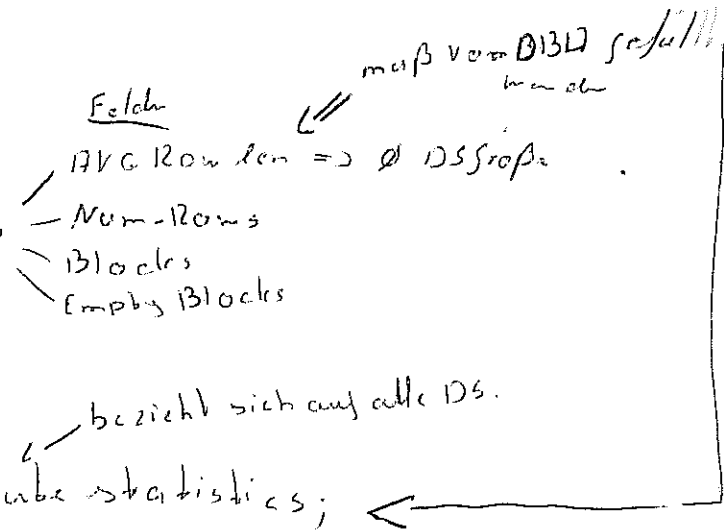 muß vom DBA gefüllt
werden
Felder
AVG Row len => Ø DSgröße
Num-Rows
Blocks
Empty Blocks
bezieht sich auf alle DS.
statistics;